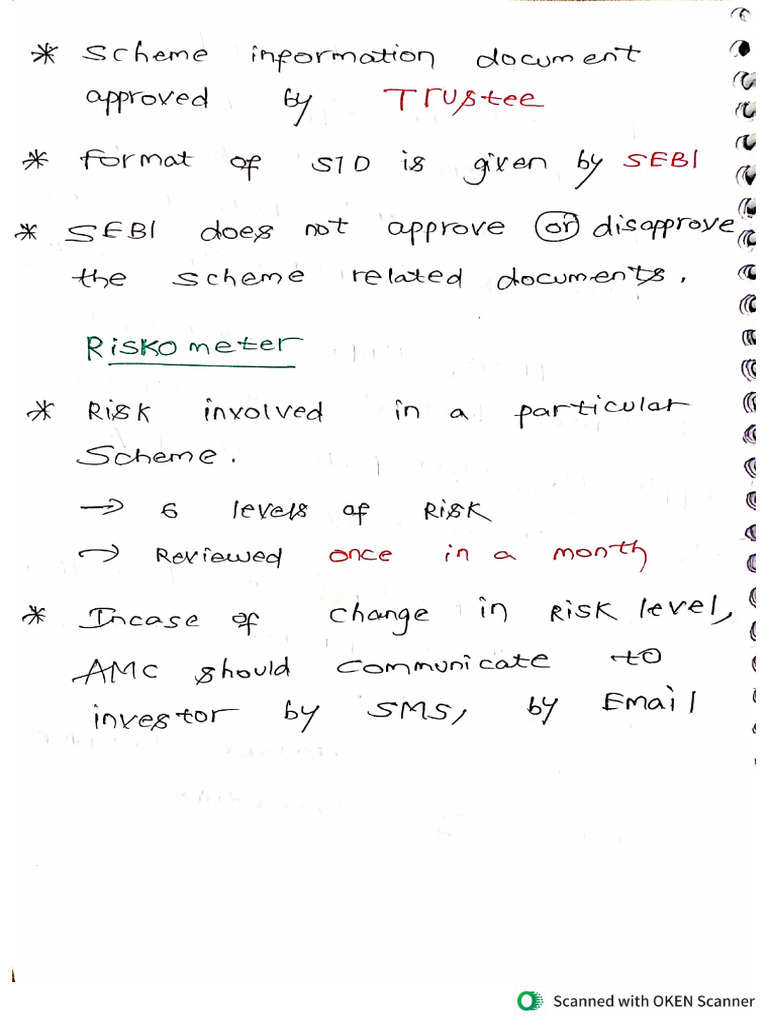 * Scheme information document
approved by Trustee
* format of SID is given by SEBI
* SEBI does not approve or disapprove
the scheme related documents.
Riskometer
* Risk involved in a particular
Scheme.
→ 6 levels of Risk
→ Reviewed once in a month
* Incase of change in Risk level,
AMC should communicate to
investor by SMS, by Email
Scanned with OKEN Scanner